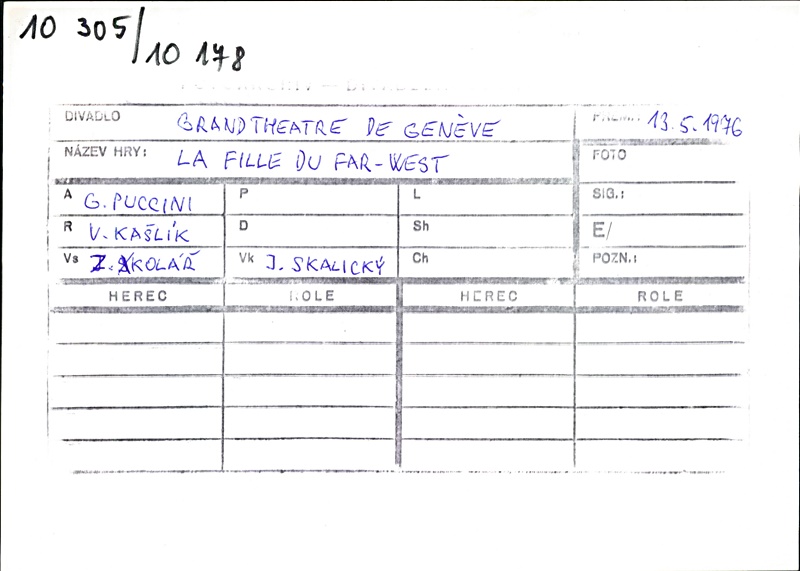 10 305/
10 178
DIVADLO GRANDTHEATRE DE GENÈVE 13.5.1976
NÁZEV HRY: LA FILLE DU FAR-WEST FOTO
A G. PUCCINI P L SIG.:
R V. KAŠLÍK D Sh E/
Vs Z. KOLÁŘ Vk J. SKALICKÝ Ch POZN.:
HEREC ROLE HEREC ROLE